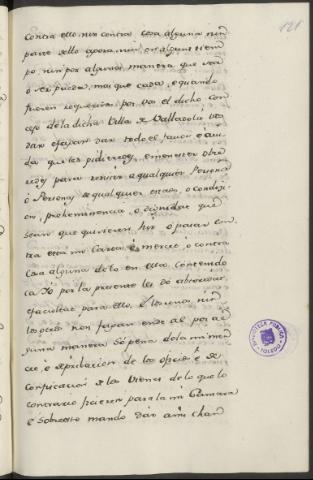 121
contra ello nin contra cosa alguna nin
parte dello agora, nin en algunt tiem
po nin por alguna manera que sea
o ser pueda, mas que cada, e quando
fueren requeridos por vos el dicho con
cejo de la dicha Villa de Valladolid vos
den e fagan dar todo el favor e aiu
da que les pidieredes, e menester obie
redes para resistir a qualquier Persona
o Personas de qualquier estado, o condizi
on, preheminencia, o dignidat que
sean que quisieren hir o pasar con
tra esta mi Carta e merced, o contra
cosa alguna de lo en ella contenido
ca Io por la presente les dó abtoridat
e facultat para ello, e los unos nin
los otros non fagan ende al por al
guna manera sopena de la mi mer
ced e de pribacion de los oficios e de
confiscacion de los bienes de lo que lo
contrario ficieren para la mi Camara
e sobre esto mando dar a mi Chan
BIBLIOTECA PUBLICA
TOLEDO